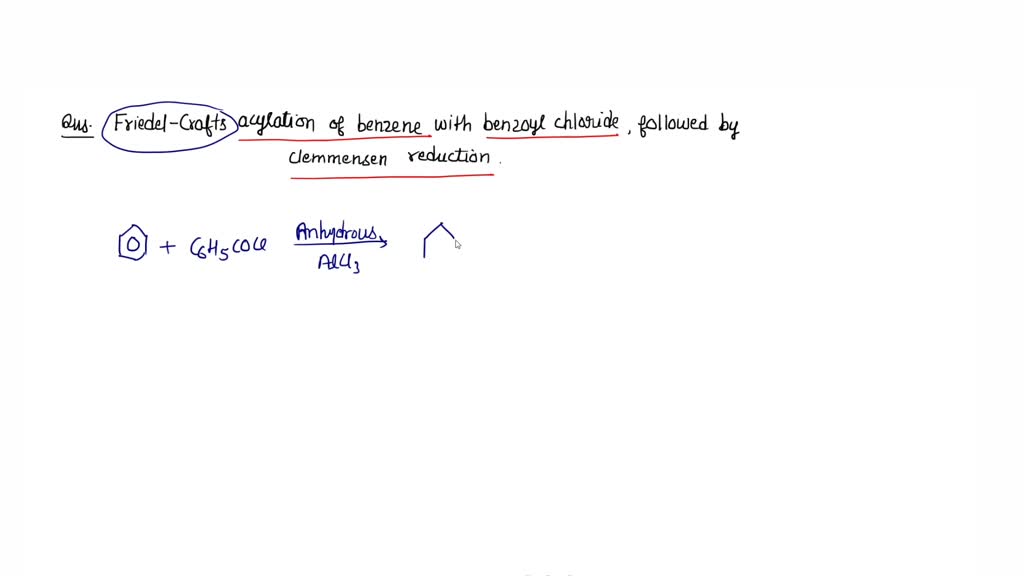 Qus. Friedel-Crafts acylation of benzene with benzoyl chloride, followed by
clemmensen reduction.
+ C6H5COCl Anhydrous
AlCl3